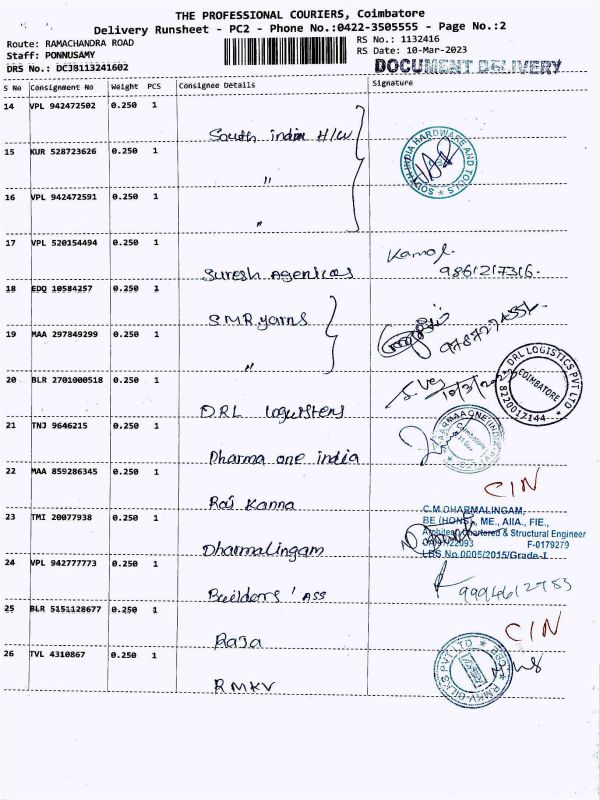 THE PROFESSIONAL COURIERS, Coimbatore
Delivery Runsheet - PC2 - Phone No.:0422-3505555 - Page No.:2
Route: RAMACHANDRA ROAD
RS No.: 1132416
Staff: PONNUSAMY
RS Date: 10-Mar-2023
DRS No.: DCJ8113241602
DOCUMENT DELIVERY
S No Consignment No Weight PCS Consignee Details Signature
14 VPL 942472502 0.250 1 South india H/W
15 KUR 528723626 0.250 1 "
SOUTH INDIA HARDWARE AND TOOLS
16 VPL 942472591 0.250 1 "
17 VPL 520154494 0.250 1 Suresh Agencies Kamal
9861217316.
18 EDQ 10584257 0.250 1 S.M.R. yarns
19 MAA 297849299 0.250 1 "
20 BLR 2701000518 0.250 1 DRL logisters
DRL LOGISTICS PVT LTD
COIMBATORE
8220017144
21 TNJ 9646215 0.250 1 Dharma one india
22 MAA 859286345 0.250 1 Raj Kanna CIN
23 TMI 20077938 0.250 1 Dharmalingam
C.M.DHARMALINGAM,
BE (HONS), ME., AIIA., FIE.,
Architect Chartered & Structural Engineer
F-0179279
LBS No.0005/2015/Grade-I
24 VPL 942777773 0.250 1 Builders' Ass
25 BLR 5151128677 0.250 1 Raja CIN
26 TVL 4310867 0.250 1 RMKV